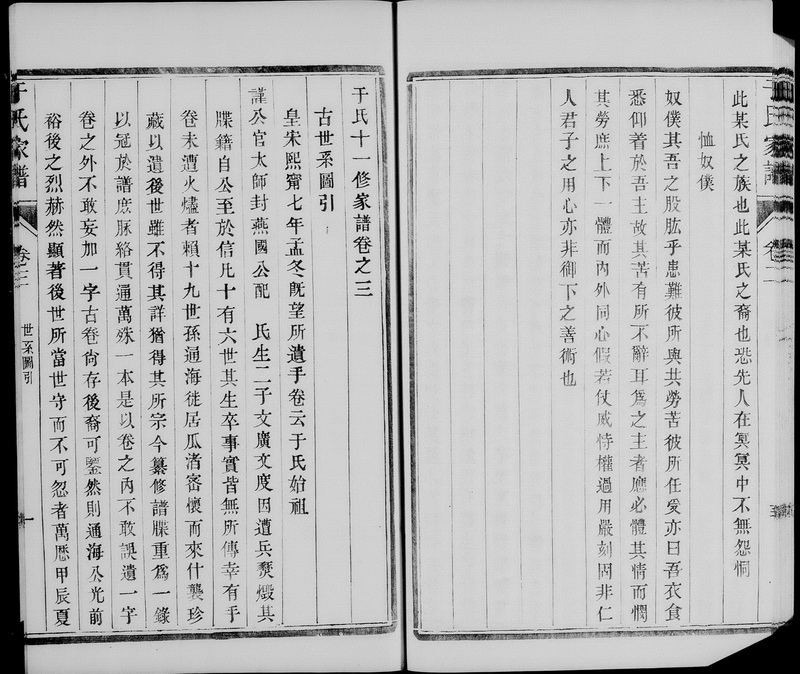 此某氏之族也此某氏之裔也恐先人在冥冥中不無怨恫
恤奴僕
奴僕其吾之股肱乎患難彼所與共勞苦彼所任爰亦曰吾衣食
悉仰着於吾主故其苦有所不辭耳爲之主者應必體其情而憫
其勞庶上下一體而內外同心假若仗威恃權過用嚴刻固非仁
人君子之用心亦非御下之善術也
于氏家譜
卷二
于氏十一修家譜卷之三
古世系圖引
皇宋熙甯七年孟冬既望所遺手卷云于氏始祖
謹公官太師封燕國公配 氏生二子文廣文度因遭兵燹燬其
牒籍自公至於信凡十有六世其生卒事實皆無所傳幸有手
卷未遭火燼者賴十九世孫通海徙居瓜渚密懷而來什襲珍
藏以遺後世雖不得其詳猶得其所宗今纂修譜牒重爲一錄
以冠於譜庶脉絡貫通萬殊一本是以卷之內不敢誤遺一字
卷之外不敢妄加一字古卷尙存後裔可鑒然則通海公光前
裕後之烈赫然顯著後世所當世守而不可忽者萬厯甲辰夏
于氏家譜
卷三
世系圖引
一